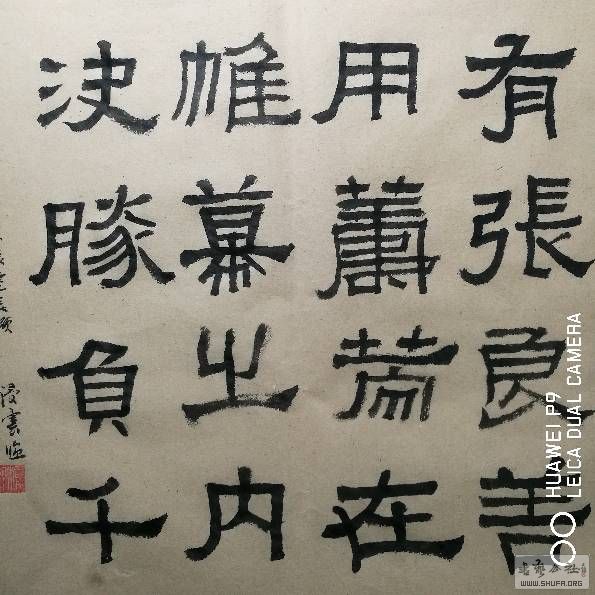 有張良善
用籌策在
帷幕之內
決勝負千
凌雲臨
HUAWEI P9
LEICA DUAL CAMERA
书艺公社
WWW.SHUFA.ORG